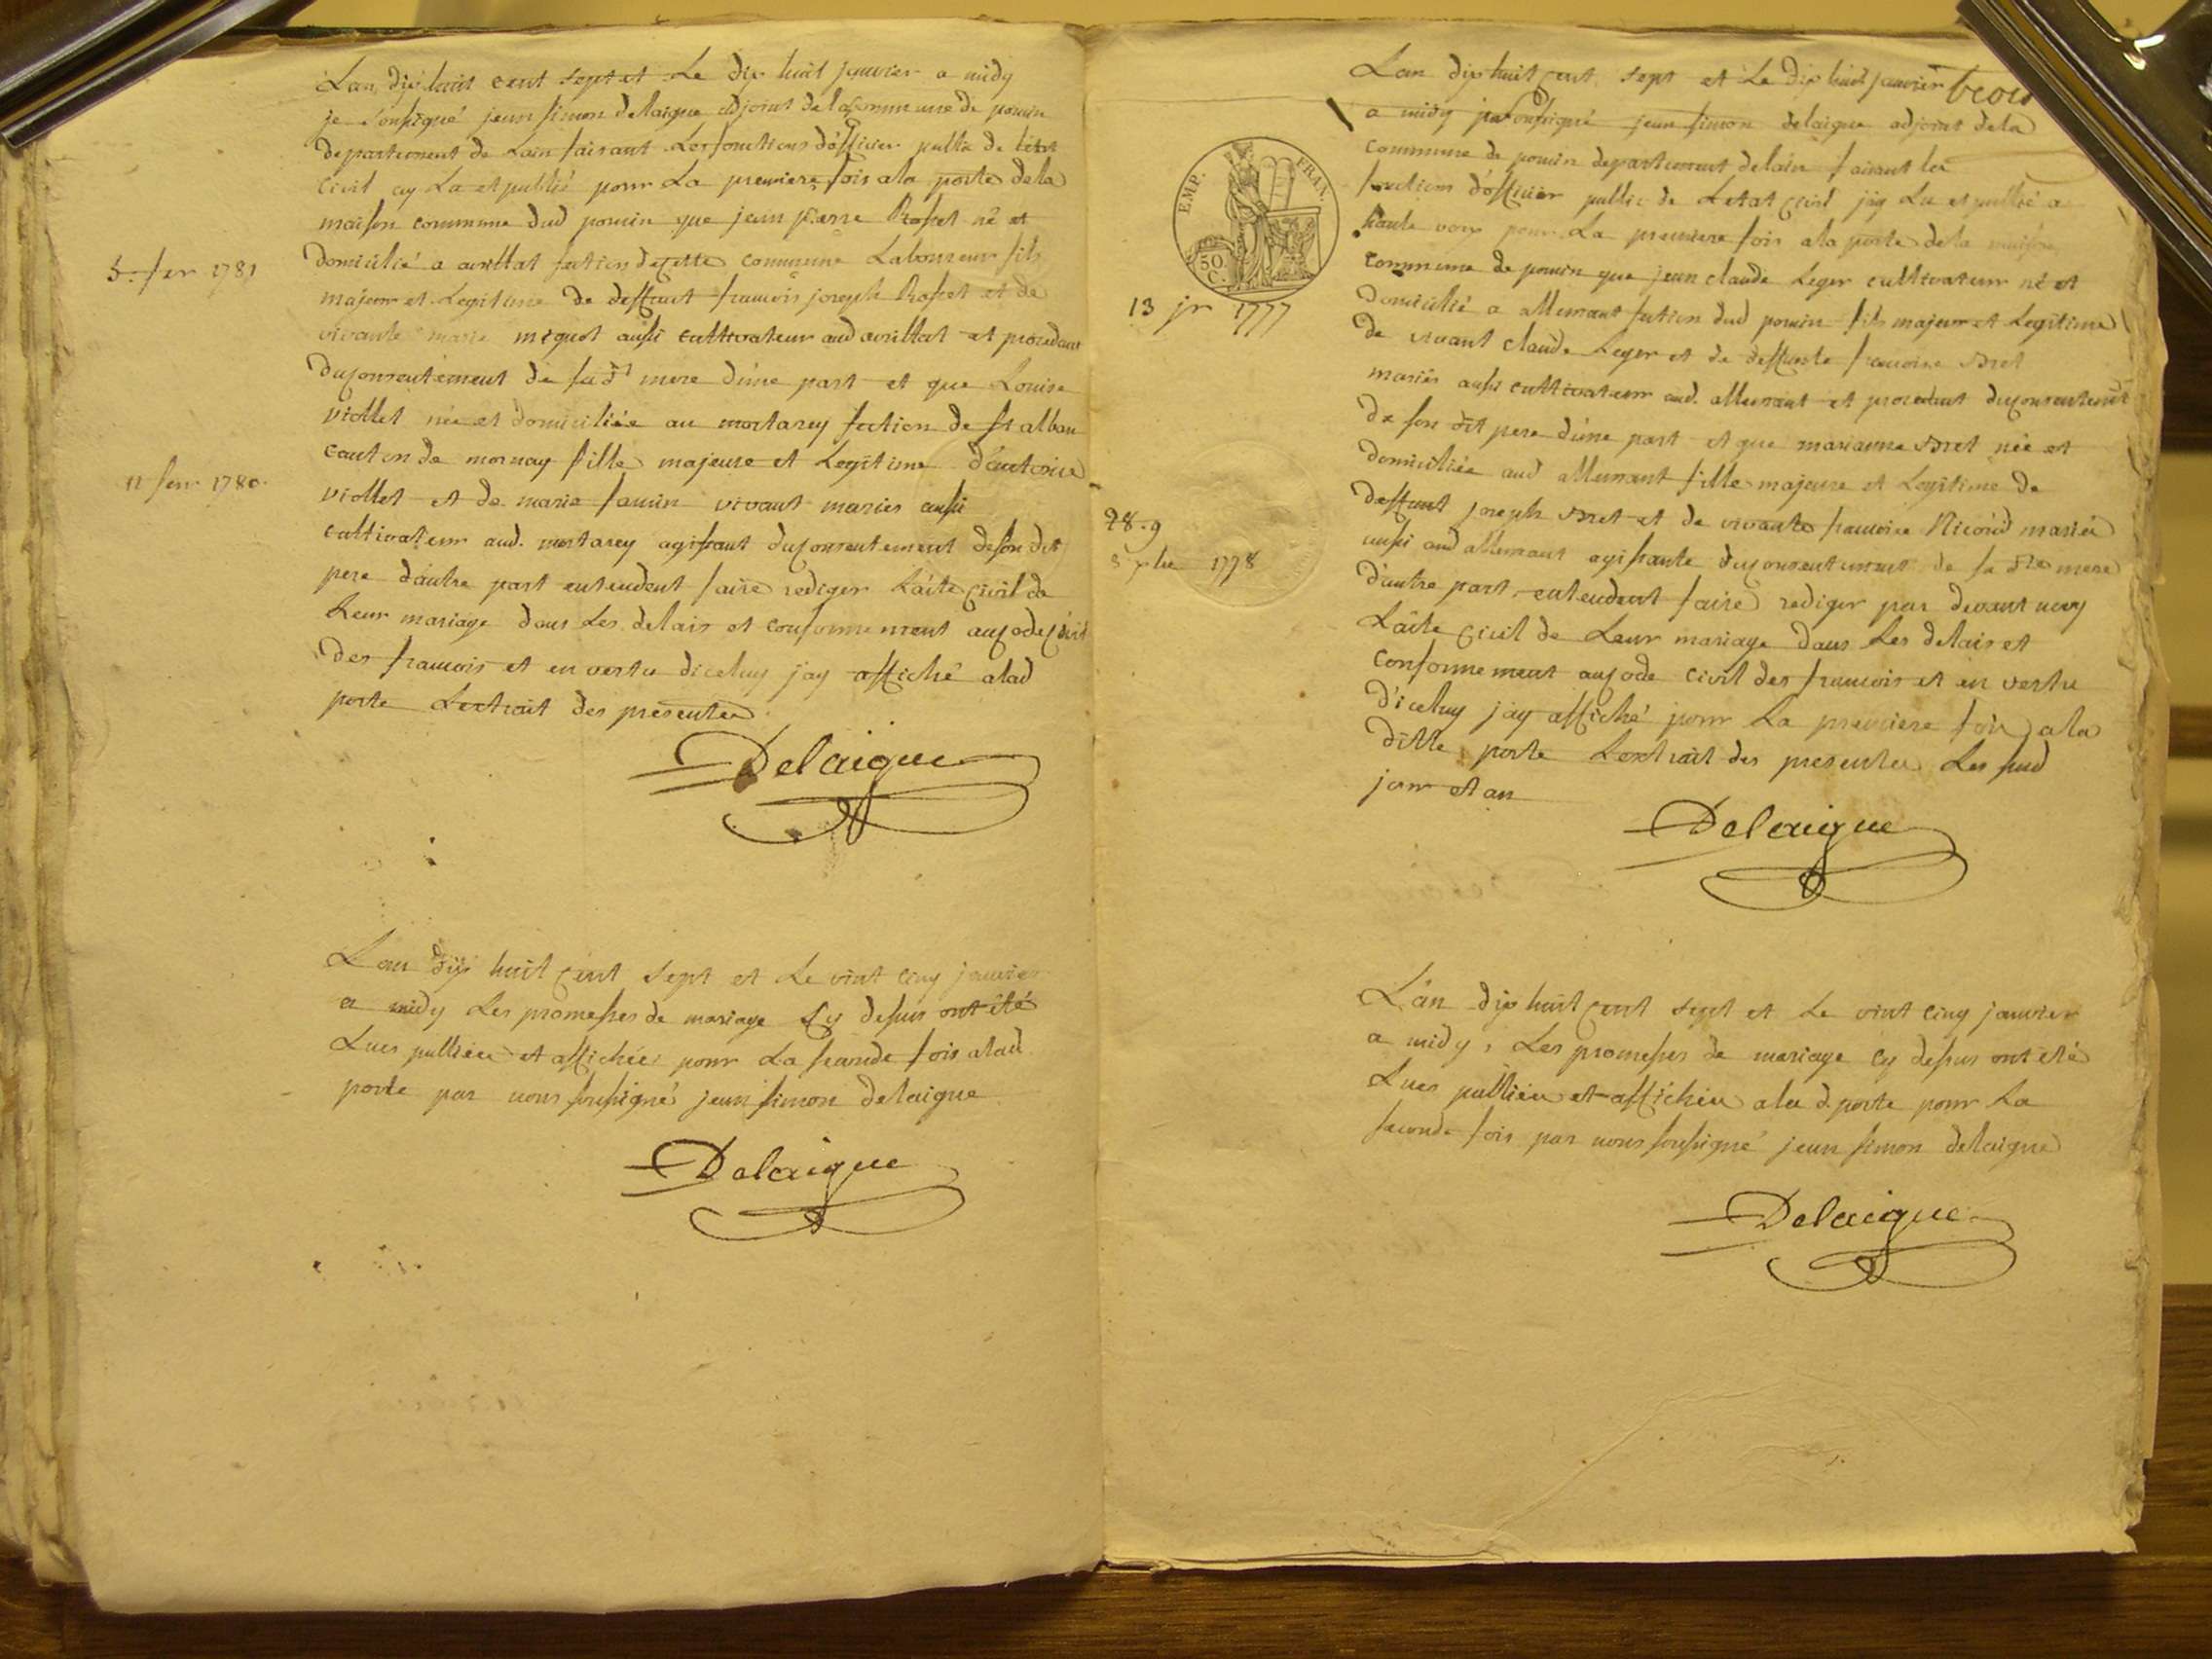 Lan dix huit cent sept et Le dix huit janvier a midy
je soussigné jean simon delaigue adjoint de la commune de poncin
departement de Lain faisant Les fonctions d'officier public de l'état
civil ay Lu et publié pour La premiere fois a la porte de la
maison commune dud poncin que jean pierre Rosset né et
domicilié a avrillat section de cette commune Laboureur fils
majeur et Legitime de deffunt francois joseph Rosset et de
vivante marie miguot aussi cultivateur aud avrillat et procedant
du consentement de sad mere d'une part et que Louise
viollet née et domiciliée au mortarey section de st alban
canton de mornay fille majeure et Legitime d'antoine
viollet et de marie vivant mariés aussi
cultivateur aud. mortarey agissant du consentement de son dit
pere d'autre part entendent faire rediger L'acte civil de
Leur mariage dans Les delais et conformement au code civil
des francois et en vertu diceluy jay affiché a lad
porte Lextrait des presentes
Delaigue
5. fer 1781
11 fer 1780.
Lan dix huit cent sept et Le vint cinq janvier
a midy Les promesses de mariage cy dessus ont été
Lues publiées et affichées pour La seconde fois a lad
porte par nous soussigné jean simon delaigue
Delaigue
Lan dix huit cent sept et Le dix huit janvier
a midy je soussigné jean simon delaigue adjoint de la
commune de poncin departement de lain faisant les
fonctions d'officier public de Letat civil jay Lu et publié a
haute voix pour La premiere fois a la porte de la maison
commune de poncin que jean claude Leger cultivateur né et
domicilié a allement section dud poncin fils majeur et Legitime
de vivant claude Leger et de deffunte francoise Bret
mariés aussi cultivateur aud. allement et procedant du consentement
de son dit pere d'une part et que marianne Bret née et
domiciliée aud allement fille majeure et Legitime de
deffunt joseph Bret et de vivante francoise Nicoud mariés
aussi aud allement agissante du consentement de sa dte mere
d'autre part, entendent faire rediger par devant nous
L'acte civil de Leur mariage dans Les delais et
conformement au code civil des francois et en vertu
d'iceluy jay affiché pour La premiere fois a la
ditte porte Lextrait des presentes Les sud
jour et an
Delaigue
EMP. FRAN.
50 C.
13 jr 1777
28. 9
1778
L'an dix huit cent sept et Le vint cinq janvier
a midy, Les promesses de mariage cy dessus ont été
Lues publiées et affichées a la d. porte pour La
seconde fois par nous soussigné jean simon delaigue
Delaigue